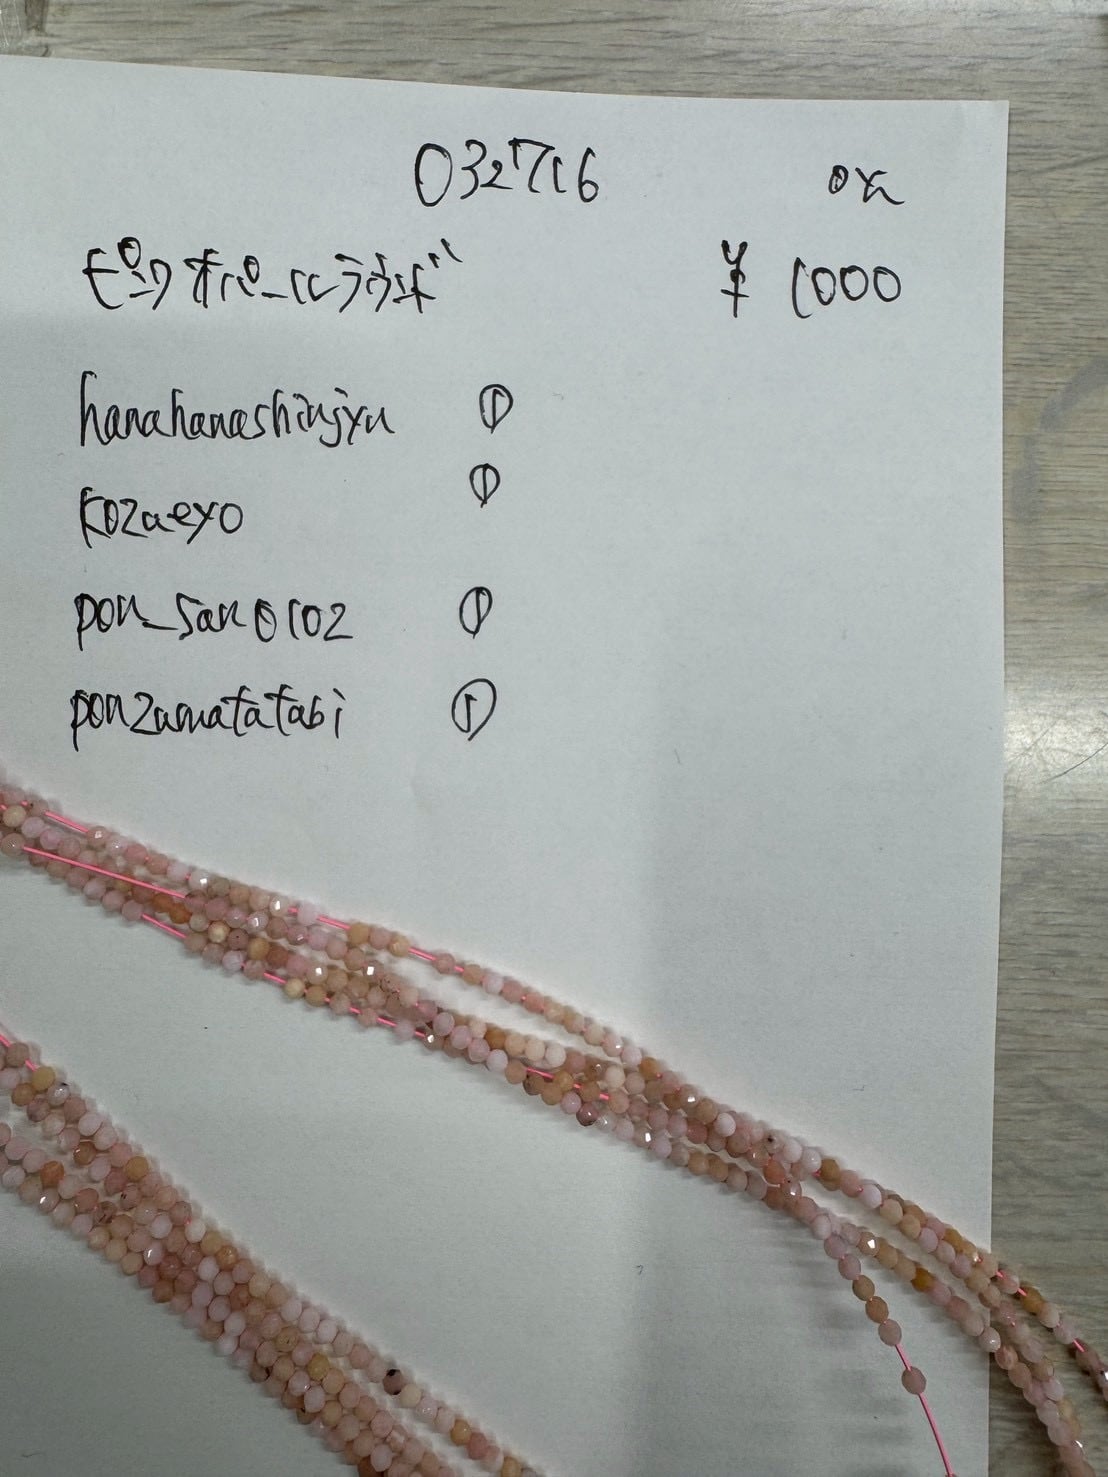 032716
ピンクオパールラウンド ¥ 1000
hanahanashinjyu ①
kozaeyo ①
pon_san0102 ①
ponzamatatabi ①